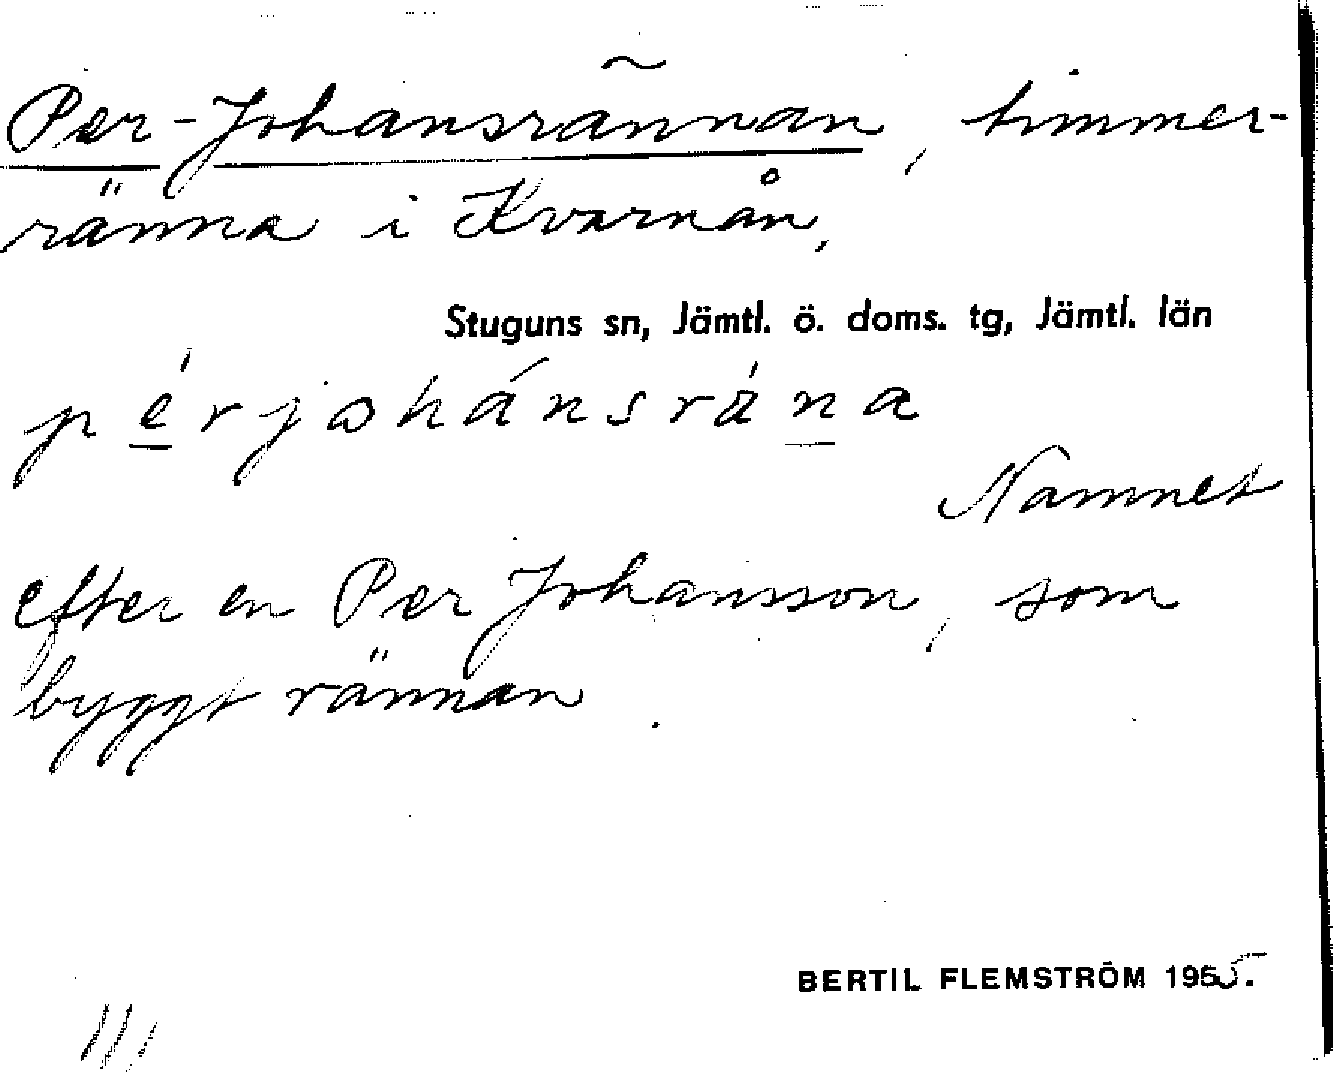 Per-Johansrännan, timmer-
ränna i Kvarnån,
Stuguns sn, Jämtl. ö. doms. tg, Jämtl. län
pérjohánsrána
Namnet
efter en Per Johansson, som
byggt rännan.
BERTIL FLEMSTRÖM 1965.